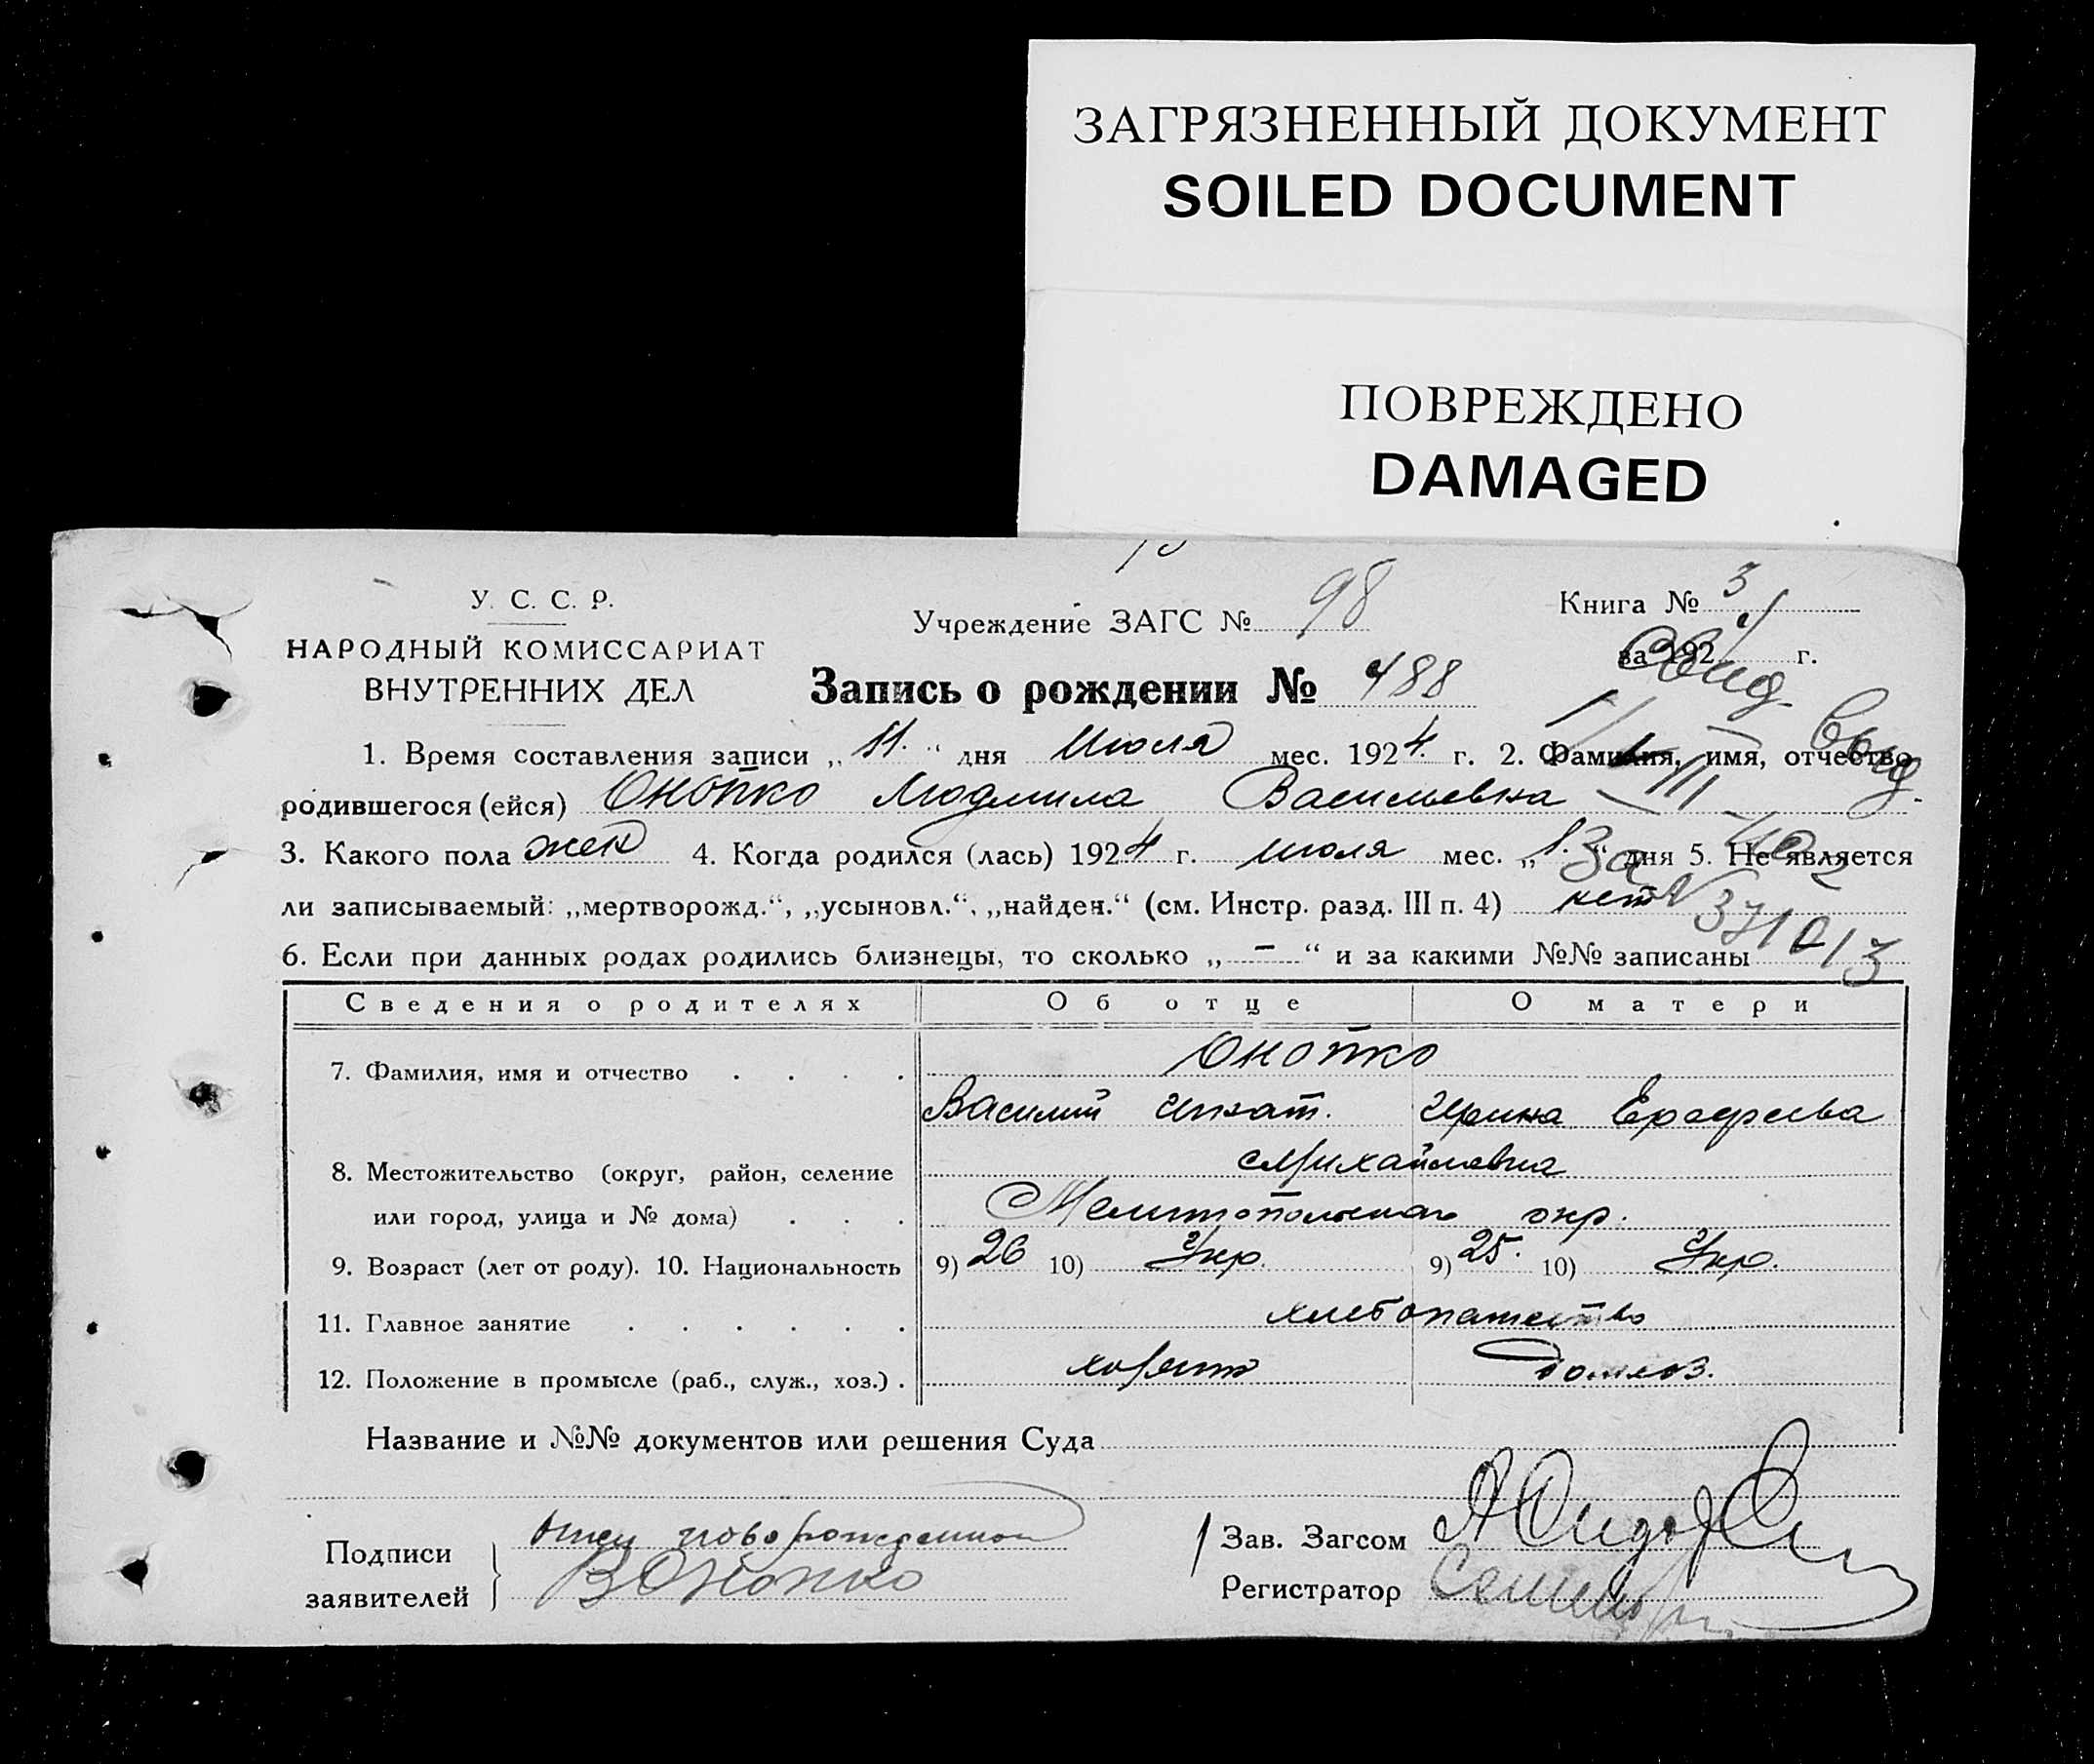 ЗАГРЯЗНЕННЫЙ ДОКУМЕНТ
SOILED DOCUMENT
ПОВРЕЖДЕНО
DAMAGED
У. С. С. Р.
НАРОДНЫЙ КОМИССАРИАТ
ВНУТРЕННИХ ДЕЛ
Учреждение ЗАГС № 98
Книга № 3
за 192 г.
Запись о рождении № 488
1. Время составления записи „ 11. “ дня Июля мес. 1924 г. 2. Фамилия, имя, отчество
родившегося (ейся) Онопко Людмила Васильевна
3. Какого пола жен 4. Когда родился (лась) 1924 г. июля мес. „ 1. “ дня 5. Не является
ли записываемый: „мертворожд.“, „усыновл.“, „найден.“ (см. Инстр. разд. III п. 4) нет
6. Если при данных родах родились близнецы, то сколько „ — “ и за какими №№ записаны
Сведения о родителях Об отце О матери
7. Фамилия, имя и отчество Онопко
Василий Игнат. Ирина
8. Местожительство (округ, район, селение
или город, улица и № дома) Мелитопольского окр.
9. Возраст (лет от роду). 10. Национальность 9) 26 10) Укр. 9) 25. 10) Укр.
11. Главное занятие хлебопашество
12. Положение в промысле (раб., служ., хоз.)
Название и №№ документов или решения Суда
Подписи
заявителей
отец новорожденной
ВОнопко
Зав. Загсом
Регистратор